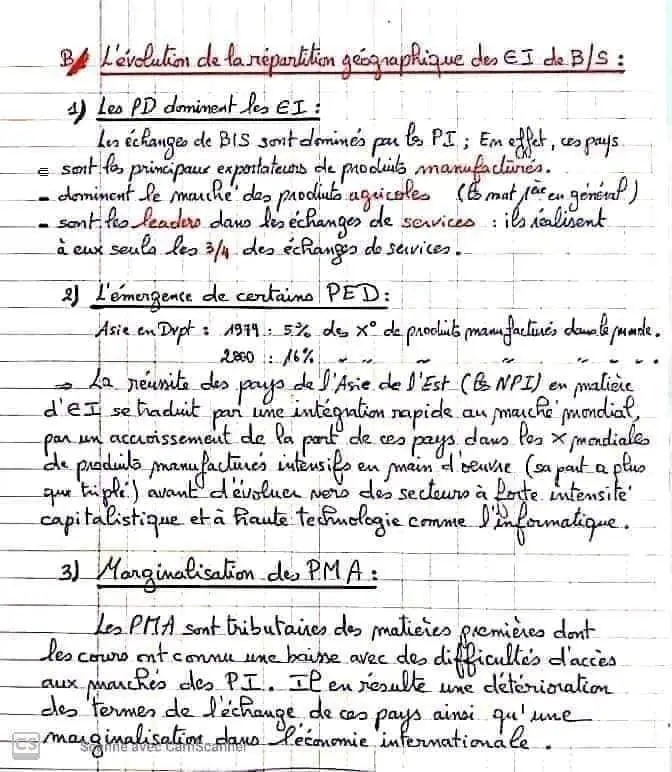 B/ L'évolution de la répartition géographique des EI de B/S :
1) Les PD dominent les EI :
Les échanges de BIS sont dominés par ls PI ; En effet, ces pays
= sont les principaux exportateurs de produits manufacturiés.
- dominent le marché des produits agricoles (ls mat 1ère en général)
- sont les leaders dans les échanges de services : ils réalisent
à eux seuls les 3/4 des échanges de services.
2) L'émergence de certains PED :
Asie en Dvpt : 1979 : 5% des X° de produits manufacturés dans le monde.
2000 : 16% " " " " " "
⇒ La réussite des pays de l'Asie de l'Est (ls NPI) en matière
d'EI se traduit par une intégration rapide au marché mondial,
par un accroissement de la part de ces pays dans les X mondiales
de produits manufacturés intensifs en main d'œuvre (sa part a plus
que triplé) avant d'évoluer vers des secteurs à forte intensité
capitalistique et à haute technologie comme l'informatique.
3) Marginalisation des PMA :
Les PMA sont tributaires des matières premières dont
les cours ont connu une baisse avec des difficultés d'accès
aux marchés des PI. Il en résulte une détérioration
des termes de l'échange de ces pays ainsi qu'une
marginalisation dans l'économie internationale.
CS Scanné avec CamScanner